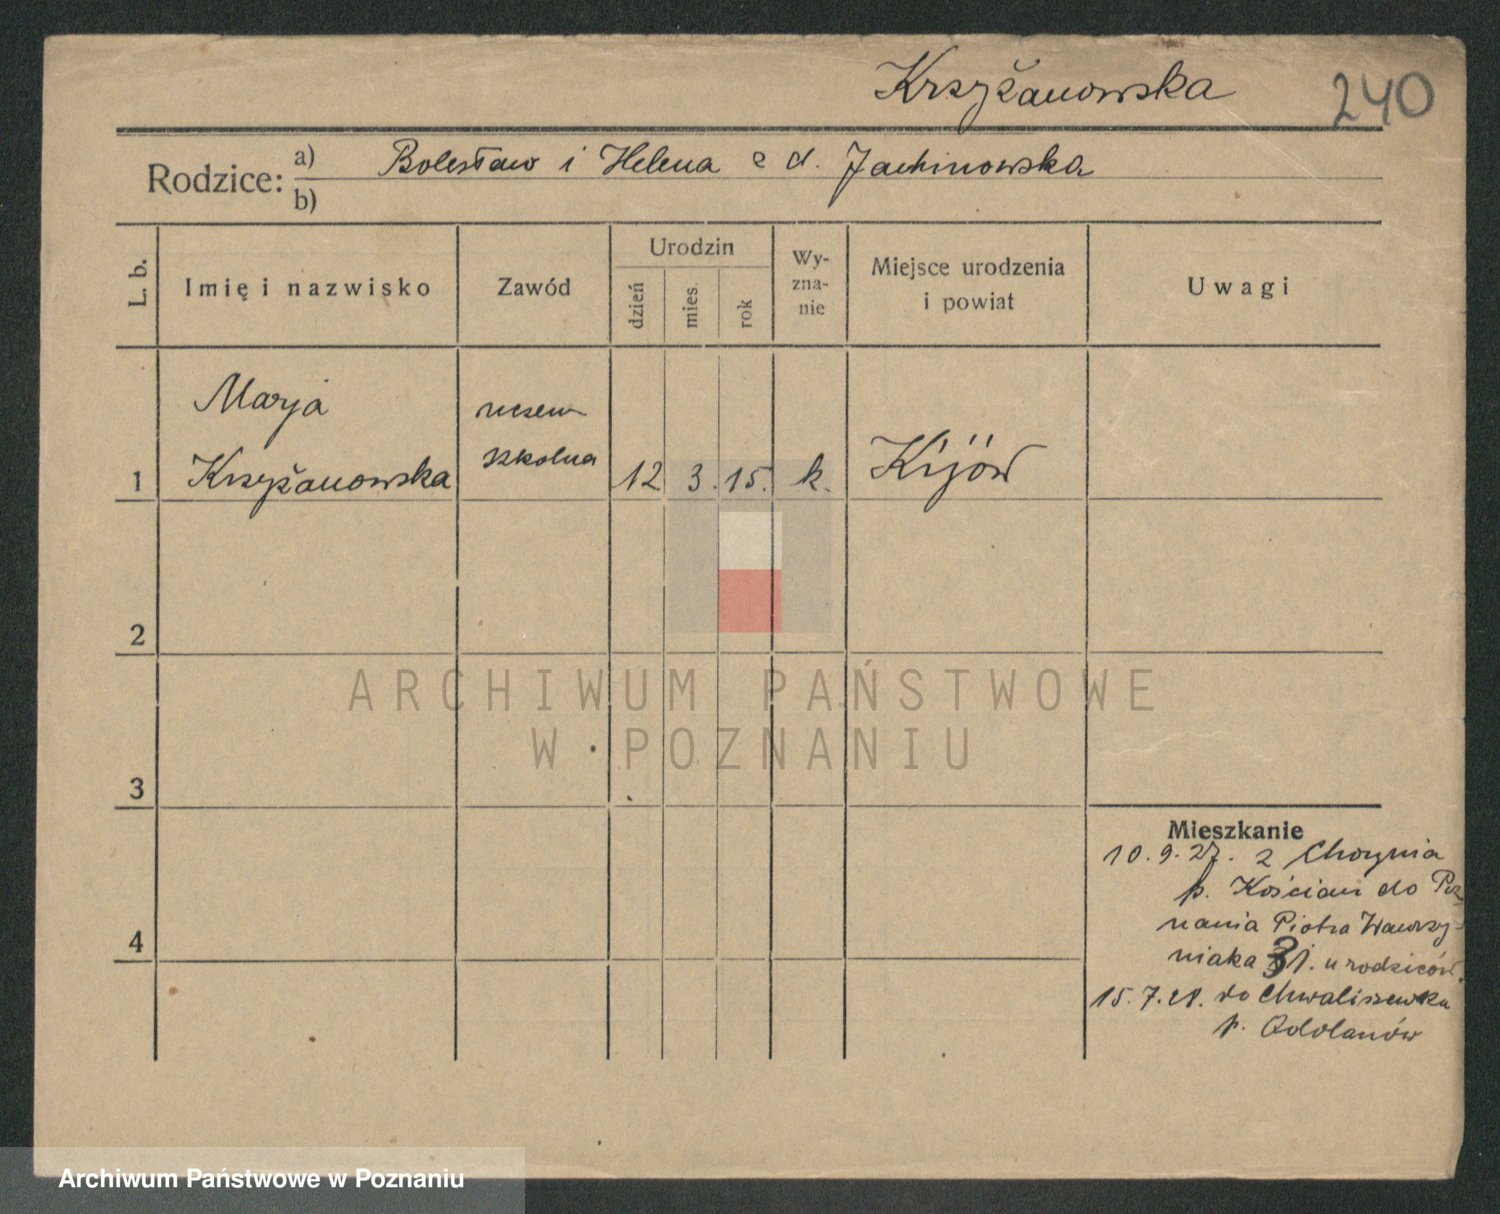 Krzyżanowska 240
Rodzice: a) Bolesław i Helena z d. Jachinowska
b)
L. b. Imię i nazwisko Zawód Urodzin dzień mies. rok Wy-zna-nie Miejsce urodzenia i powiat Uwagi
Marja uczen
1 Krzyżanowska szkolna 12 3. 15. k. Kijów
2
ARCHIWUM PAŃSTWOWE
W POZNANIU
3
Mieszkanie
10. 9. 27. z Chorynia
p. Kościan do Poz
nania Piotra Wawrzy-
niaka 31. u rodziców.
4
15. 7. 28. do Chwaliszewka
p. Odolanów
Archiwum Państwowe w Poznaniu